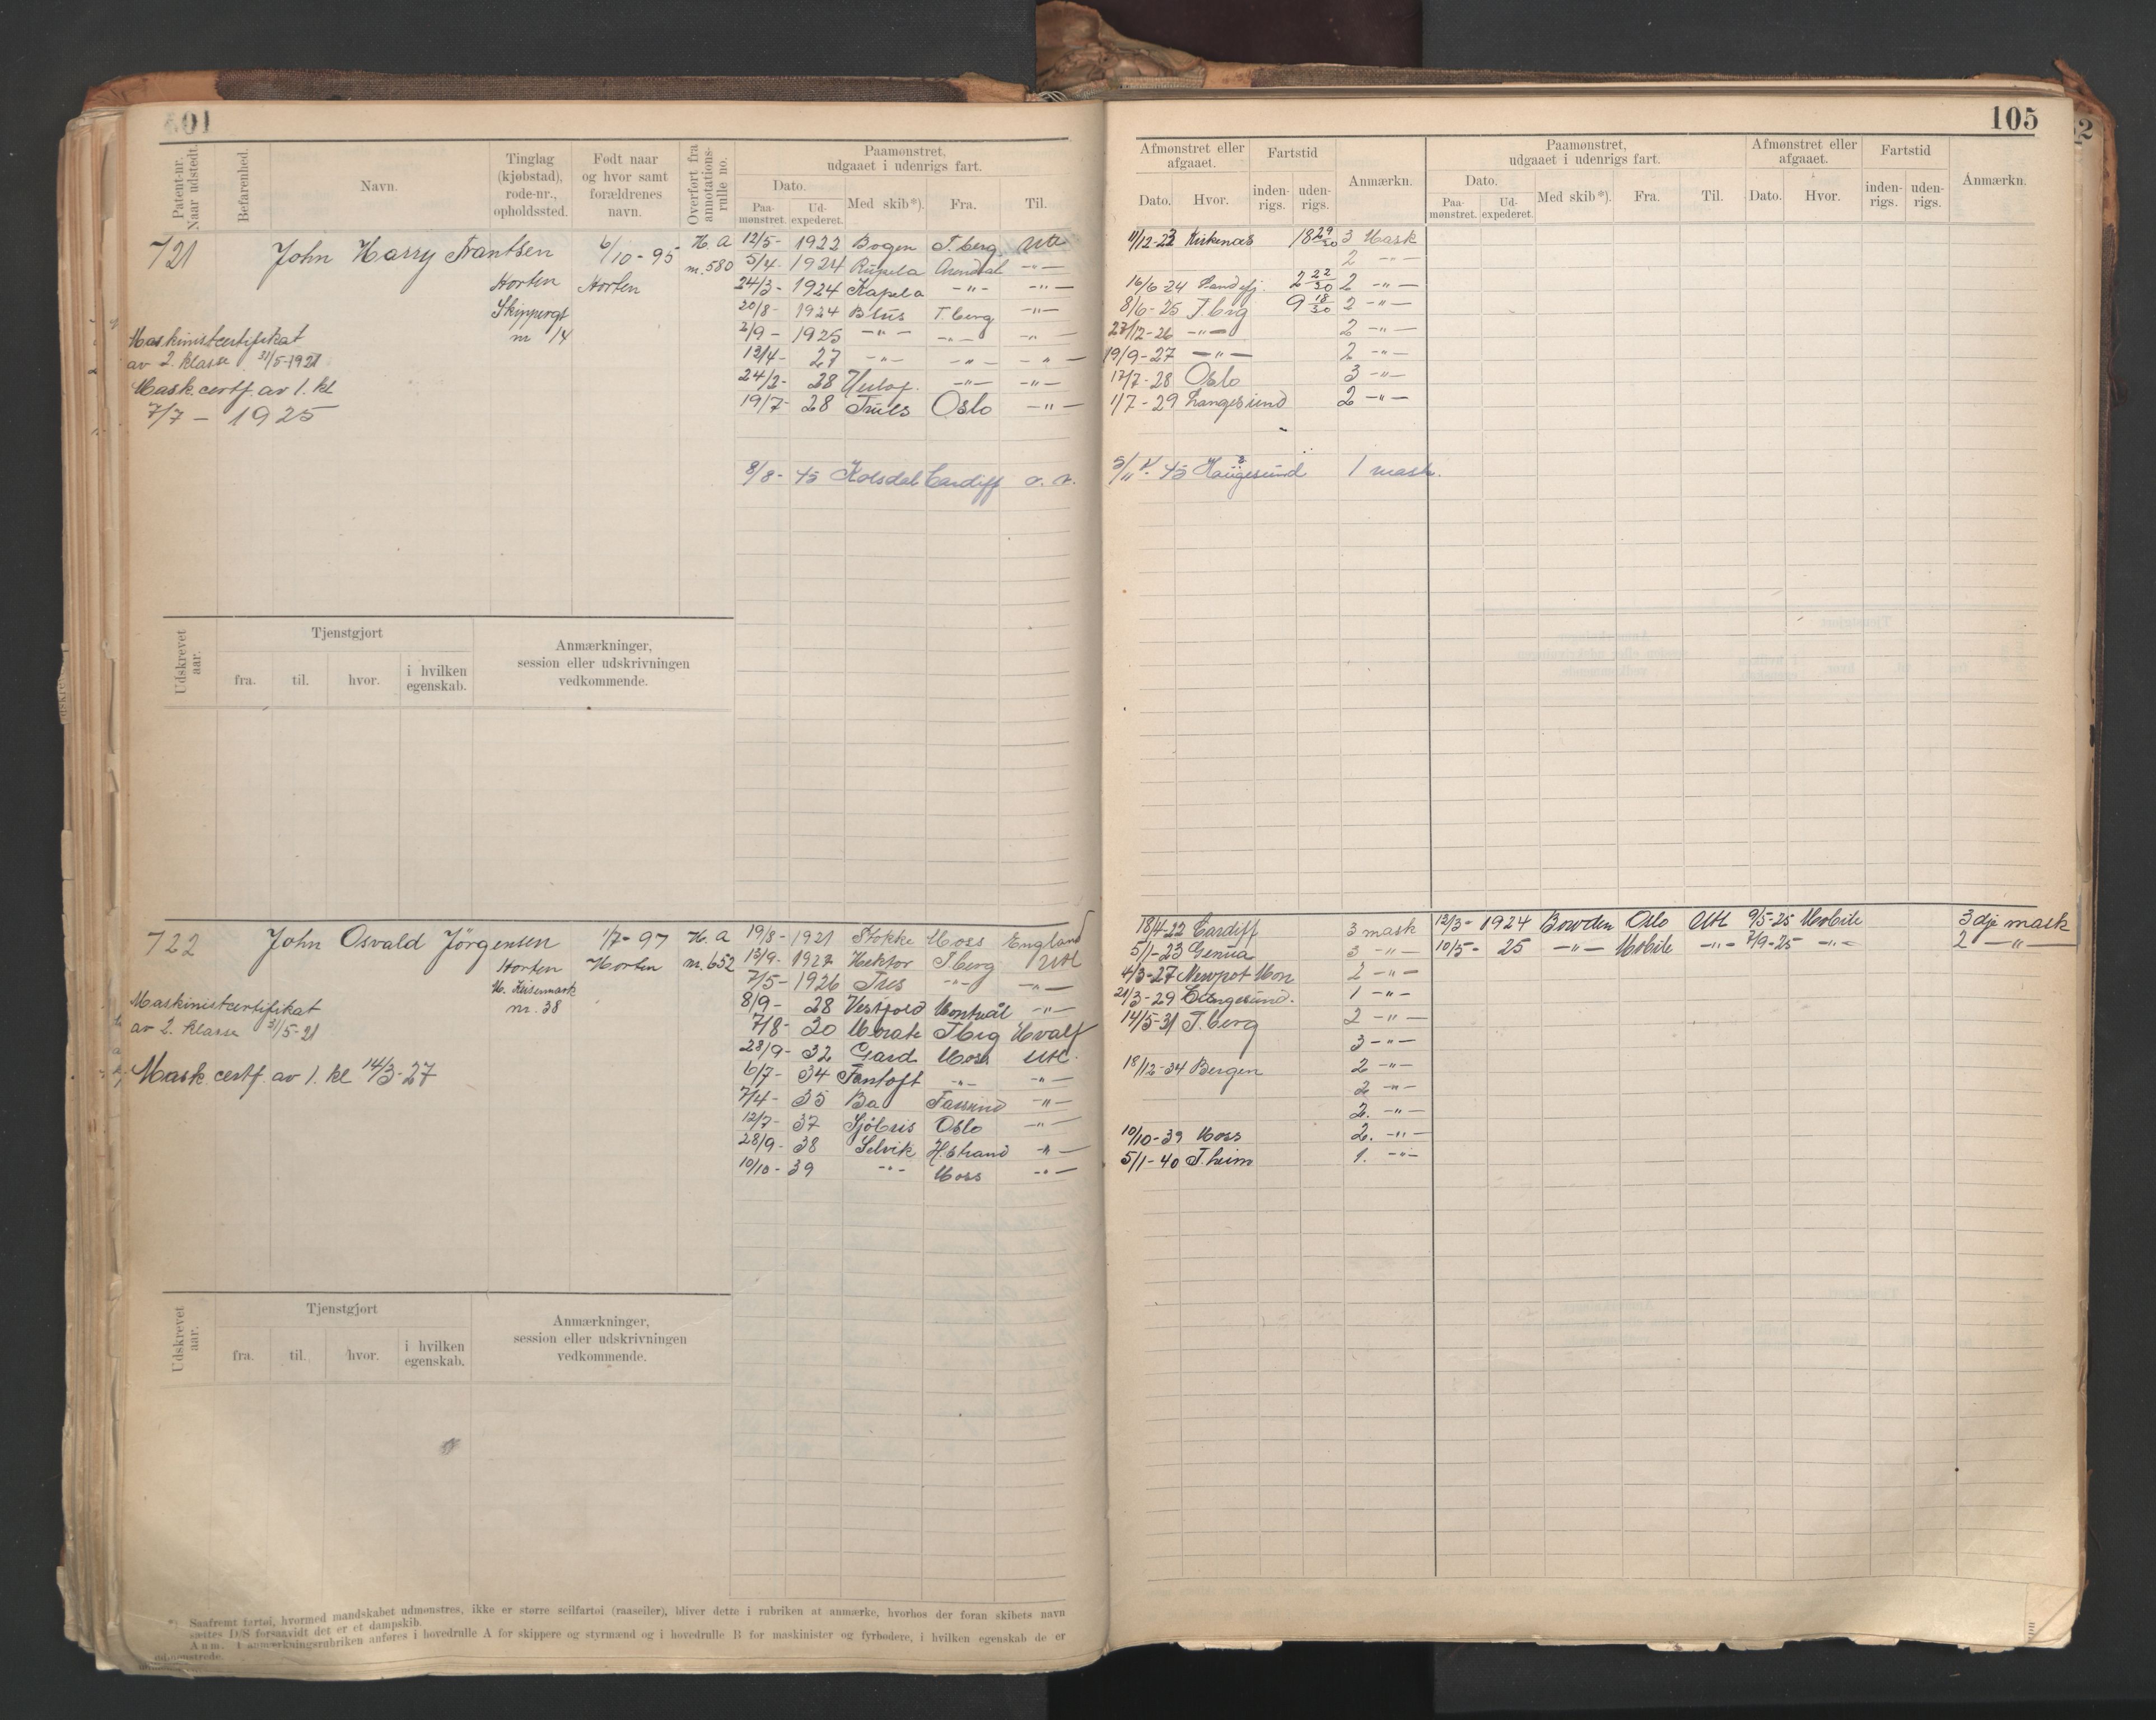 105
Patent-nr. Naar udstedt.
Befarenhed.
Navn.
Tinglag (kjøbstad), rode-nr., opholdssted.
Født naar og hvor samt forældrenes navn.
Overført fra annotations-rulle no.
Paamønstret, udgaaet i udenrigs fart.
Dato.
Paa-mønstret.
Ud-expederet.
Med skib*).
Fra.
Til.
Afmønstret eller afgaaet.
Dato.
Hvor.
Fartstid
inden-rigs.
uden-rigs.
Anmærkn.
Paamønstret, udgaaet i udenrigs fart.
Dato.
Paa-mønstret.
Ud-expederet.
Med skib*).
Fra.
Til.
Afmønstret eller afgaaet.
Dato.
Hvor.
Fartstid
inden-rigs.
uden-rigs.
Anmærkn.
721 John Harry Frantsen 6/10-95 H. A
Horten Horten nr. 580
Skippergt
nr 14
Maskinistcertifikat
av 2. klasse 31/5-1921
Mask. certf. av 1. kl
7/7 - 1925
12/5- 1922 Bogen T.berg Utl 11/12-23 Kirkenes 18 29/30 3 Mask
5/4- 1924 Arendal -"- 2 -"-
24/3- 1924 Kapela -"- -"- 16/6-24 Sandefj. 2 22/30 2 -"-
20/8- 1924 T.berg -"- 8/6-25 T.berg 9 18/30 2 -"-
2/9- 1925 -"- -"- -"- 27/12-26 -"- 2 -"-
12/4- 27 -"- -"- -"- 19/9-27 -"- 2 -"-
24/2- 28 -"- -"- 17/7-28 Oslo 3 -"-
19/7- 28 Truls Oslo -"- 1/7-29 Langesund 2 -"-
8/8- 45 Kolsdal Cardiff 45 Haugesund 1 mask.
Udskrevet aar.
Tjenstgjort
fra.
til.
hvor.
i hvilken egenskab.
Anmærkninger, session eller udskrivningen vedkommende.
722 John Osvald Jörgensen 1/7-97 H. A
Horten Horten nr. 652
nr. 38
Maskinistcertifikat
av 2. klasse 31/5-21
Mask. certf. av 1. kl 14/3-27
19/8- 1921 Stokke Moss England 18/4-22 Cardiff 3 mask 12/3- 1924 Bowden Oslo Utl 9/5-25 Mobile 3dje mask
13/9- 1922 Hektor T.berg Utl 5/1-23 Genua 3 -"- 10/5- 25 -"- Mobile -"- 7/9-25 -"- 2 -"-
7/5- 1926 Tres -"- -"- 4/3-27 Newpot Mon 2 -"-
8/9- 28 Vestfold Montreal -"- 21/3-29 Langesund. 1 -"-
7/8- 30 T.berg Hvalf 14/5-31 T.berg 2 -"-
28/9- 32 Gard Moss Utl. 3 -"-
6/7- 34 Fantoft -"- -"- 18/12-34 Bergen 2 -"-
7/4- 35 Ba -"- 2 -"-
12/7- 37 Sjöbris Oslo -"- 2. -"-
28/9- 38 Selvik H.strand -"- 10/10-39 Moss 2. -"-
10/10- 39 -"- Moss -"- 5/1-40 T.heim 1. -"-
Udskrevet aar.
Tjenstgjort
fra.
til.
hvor.
i hvilken egenskab.
Anmærkninger, session eller udskrivningen vedkommende.
*) Saafremt fartøi, hvormed mandskabet udmønstres, ikke er større seilfartøi (raaseiler), bliver dette i rubriken at anmærke, hvorhos der foran skibets navn
sættes D/S forsaavidt det er et dampskib.
Anm. I anmærkningsrubriken anføres i hovedrulle A for skippere og styrmænd og i hovedrulle B for maskinister og fyrbødere, i hvilken egenskab de er
udmønstrede.